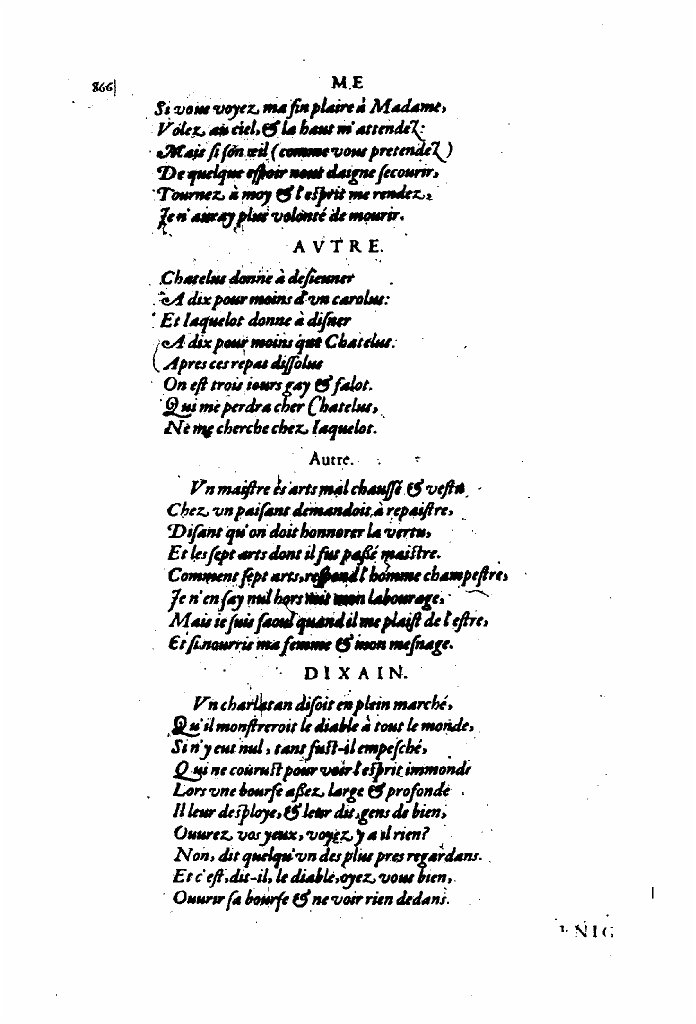 866
ME
Si vous voyez ma fin plaire à Madame,
Volez au ciel, & la haut m'attendez:
Mais si son œil (comme vous pretendez)
De quelque espoir nous daigne secourir,
Tournez à moy & l'esprit me rendez,
Je n'auray plus volonté de mourir.
AVTRE.
Chatelus donne à desieuner
A dix pour moins d'vn carolus:
Et Iaquelot donne à disner
A dix pour moins que Chatelus.
Apres ces repas dissolus
On est trois iours gay & falot.
Qui me perdra cher Chatelus,
Ne me cherche chez Iaquelot.
Autre.
Vn maistre és arts mal chaussé & vestu
Chez vn paisant demandoit à repaistre,
Disant qu'on doit honnorer la vertu,
Et les sept arts dont il fut passé maistre.
Comment sept arts, respond l'homme champestre,
Je n'en say nul hors mon labourage,
Mais ie suis saoul quand il me plaist de l'estre,
Et si nourris ma femme & mon mesnage.
DIXAIN.
Vn charlatan disoit en plein marché,
Qu'il monstreroit le diable à tout le monde,
Si n'y eut nul, tant fust-il empesché,
Qui ne courust pour voir l'esprit immonde
Lors vne bourse assez large & profonde
Il leur desploye, & leur dit, gens de bien,
Ouurez vos yeux, voyez, y a il rien?
Non, dit quelqu'vn des plus pres regardans.
Et c'est, dit-il, le diable, oyez vous bien,
Ouurir sa bourse & ne voir rien dedans.
NIG